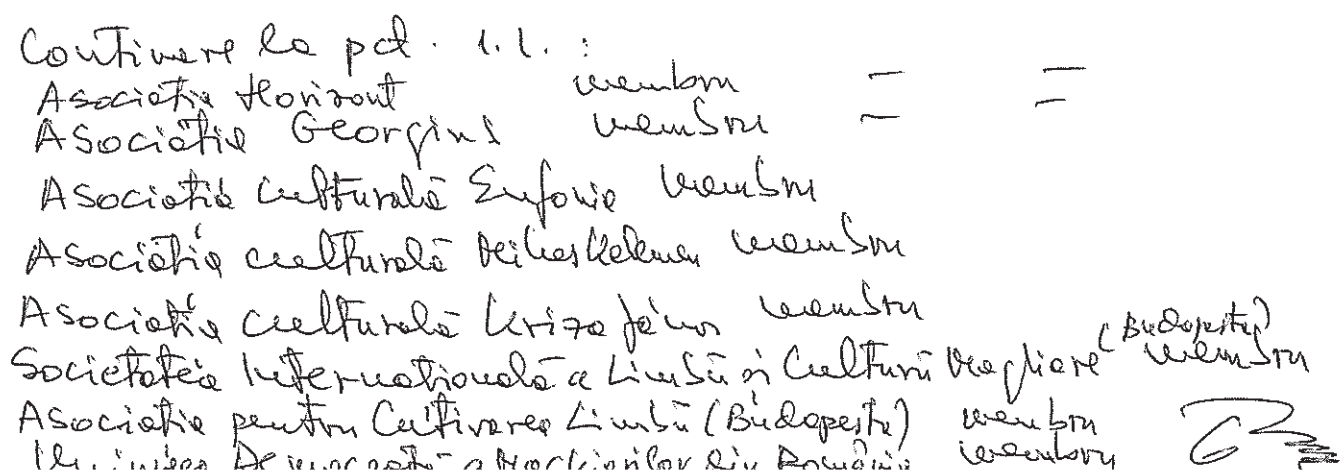 Continuare la pct. 1.1. :
Asociația Horizont membru — —
Asociația Georgius membru — —
Asociația culturală Eufonia membru
Asociația culturală Mikes Kelemen membru
Asociația culturală Kriza János membru
Societatea Internațională a Limbii și Culturii Maghiare (Budapesta) membru
Asociația pentru Cultivarea Limbii (Budapesta) membru
Uniunea Democrată a Maghiarilor din România membru